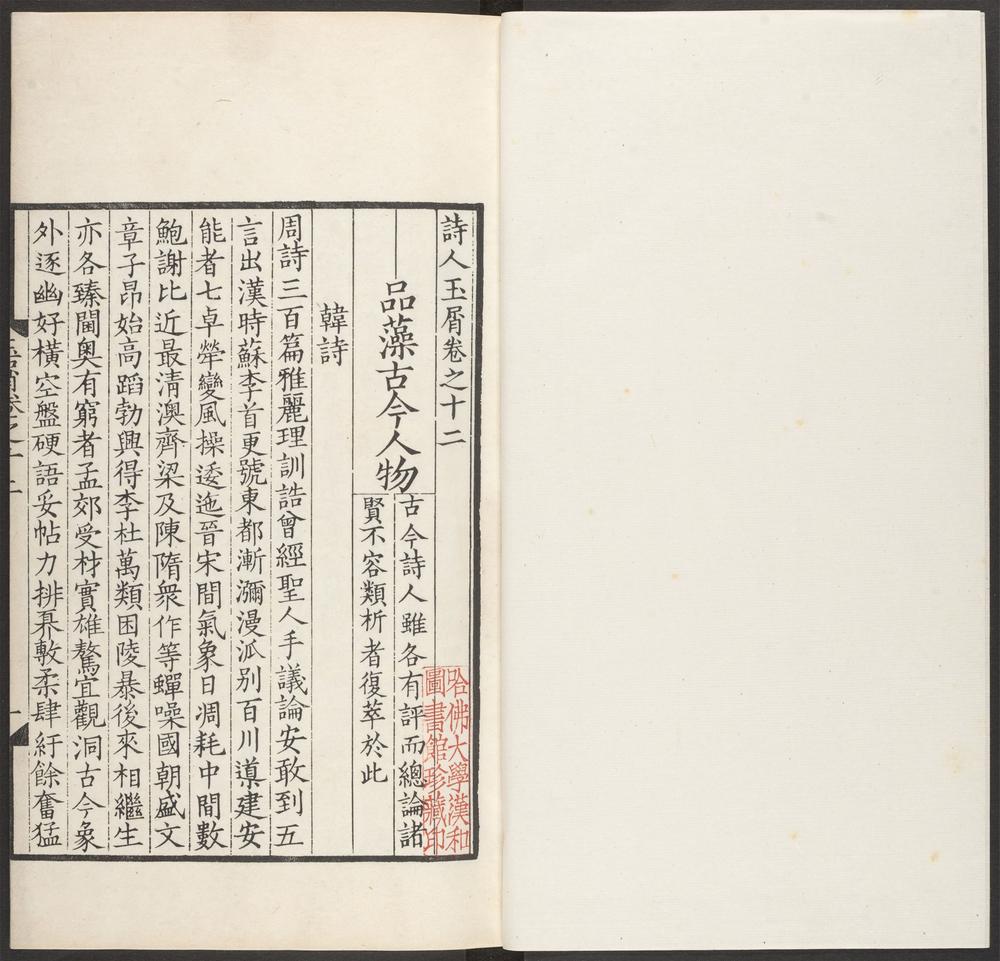 詩人玉屑卷之十二
品藻古今人物
古今詩人雖各有評而總論諸
賢不容類析者復萃於此
韓詩
周詩三百篇雅麗理訓誥曾經聖人手議論安敢到五
言出漢時蘇李首更號東都漸瀰漫泒別百川導建安
能者七卓犖變風操逶迤晉宋間氣象日凋耗中間數
鮑謝比近最清澳齊梁及陳隋衆作等蟬噪國朝盛文
章子昂始高蹈勃興得李杜萬類困陵暴後來相繼生
亦各臻閫奥有窮者孟郊受材實雄驁冝觀洞古今象
外逐幽好橫空盤硬語妥帖力排奡敷柔肆紆餘奮猛
哈佛大學漢和
圖書館珍藏印